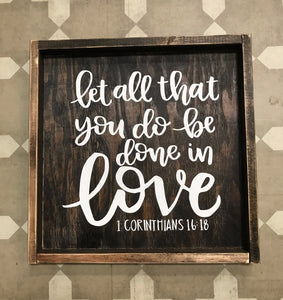 let all that
you do be
done in
love
1 CORINTHIANS 16:18